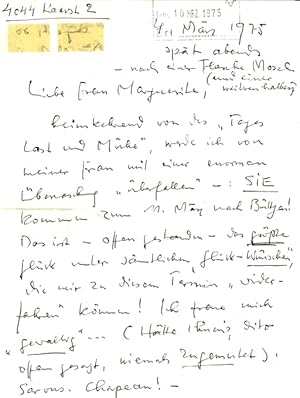 4044 Kaarst 2
10. MRZ. 1975
4. März 1975
spät abends
– nach einer Flasche Mosel
(und einer
Liebe Frau Marguerite,
heimkehrend von des „Tages
Last und Mühe", werde ich von
meiner Frau mit einer enormen
Überraschung „überfallen" –: SIE
kommen zum 11. März nach Büttgen!
Das ist – offen gestanden – das größte
Glück unter sämtlichen „Glück-Wünschen",
die mir zu diesem Termin „wider-
fahren" können! Ich freue mich
„gewaltig" --- (Hätte Ihnen's, dito
offen gesagt, niemals zugemutet).
Servus. Chapeau! –